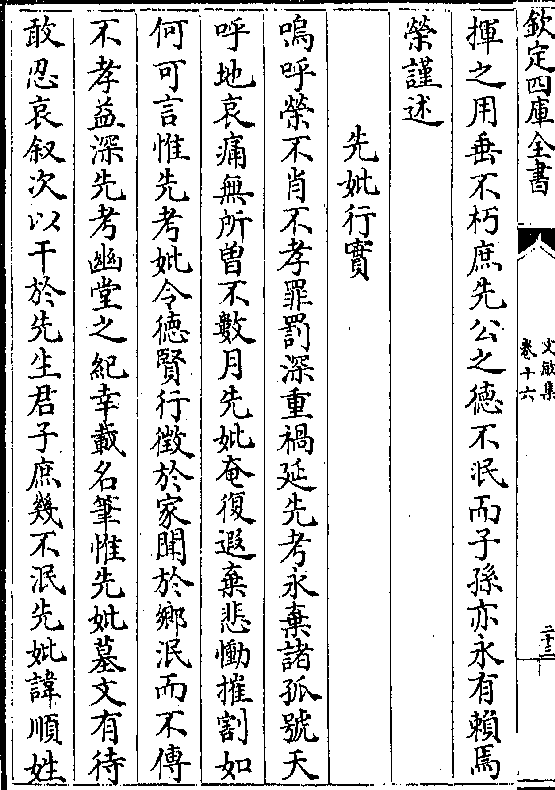 欽定四庫全書
文敏集
卷十六
二十三
揮之用垂不朽庶先公之德不泯而子孫亦永有賴焉
榮謹述
先妣行實
嗚呼榮不肖不孝罪罰深重禍延先考永棄諸孤號天
呼地哀痛無所曽不數月先妣奄復遐棄悲慟摧割如
何可言惟先考妣令德賢行徴於家聞於鄉泯而不傳
不孝益深先考幽堂之紀幸載名筆惟先妣墓文有待
敢忍哀叙次以干於先生君子庶幾不泯先妣諱順姓